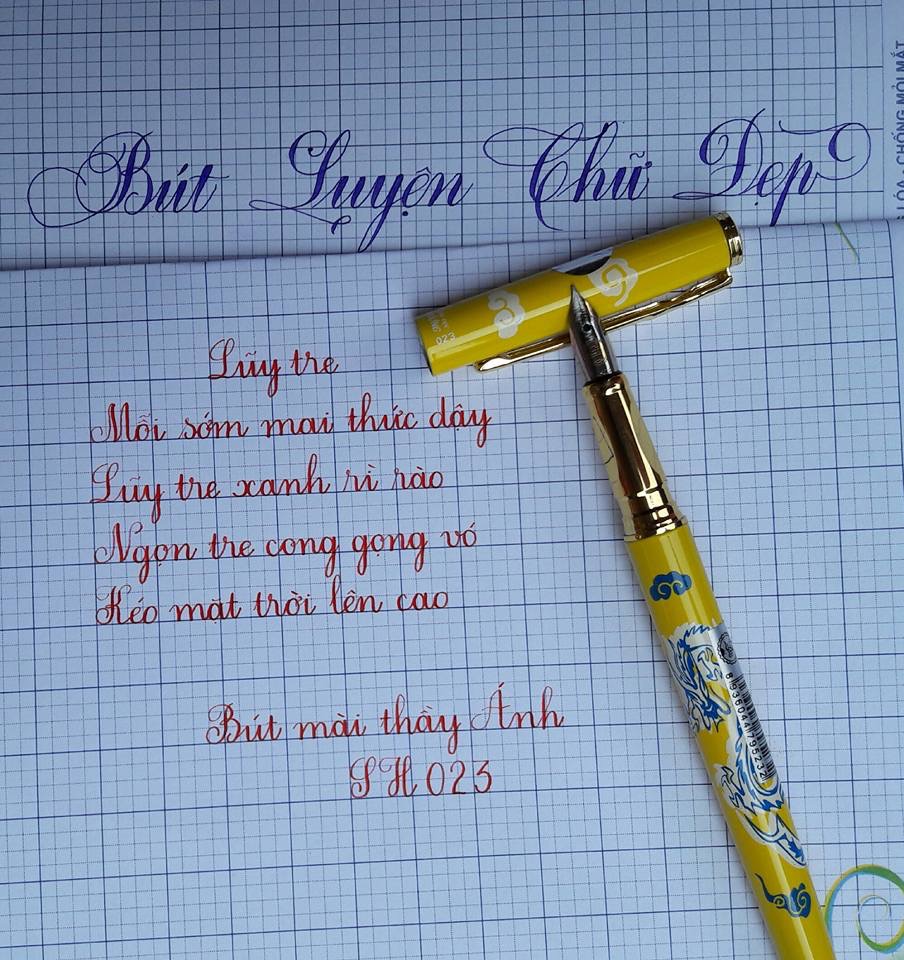 LÓA - CHỐNG MỎI MẮT
Bút Luyện Chữ Đẹp
023
Lũy tre
Mỗi sớm mai thức dậy
Lũy tre xanh rì rào
Ngọn tre cong gọng vó
Kéo mặt trời lên cao
Bút mài thầy Ánh
SH 023
8936044795232